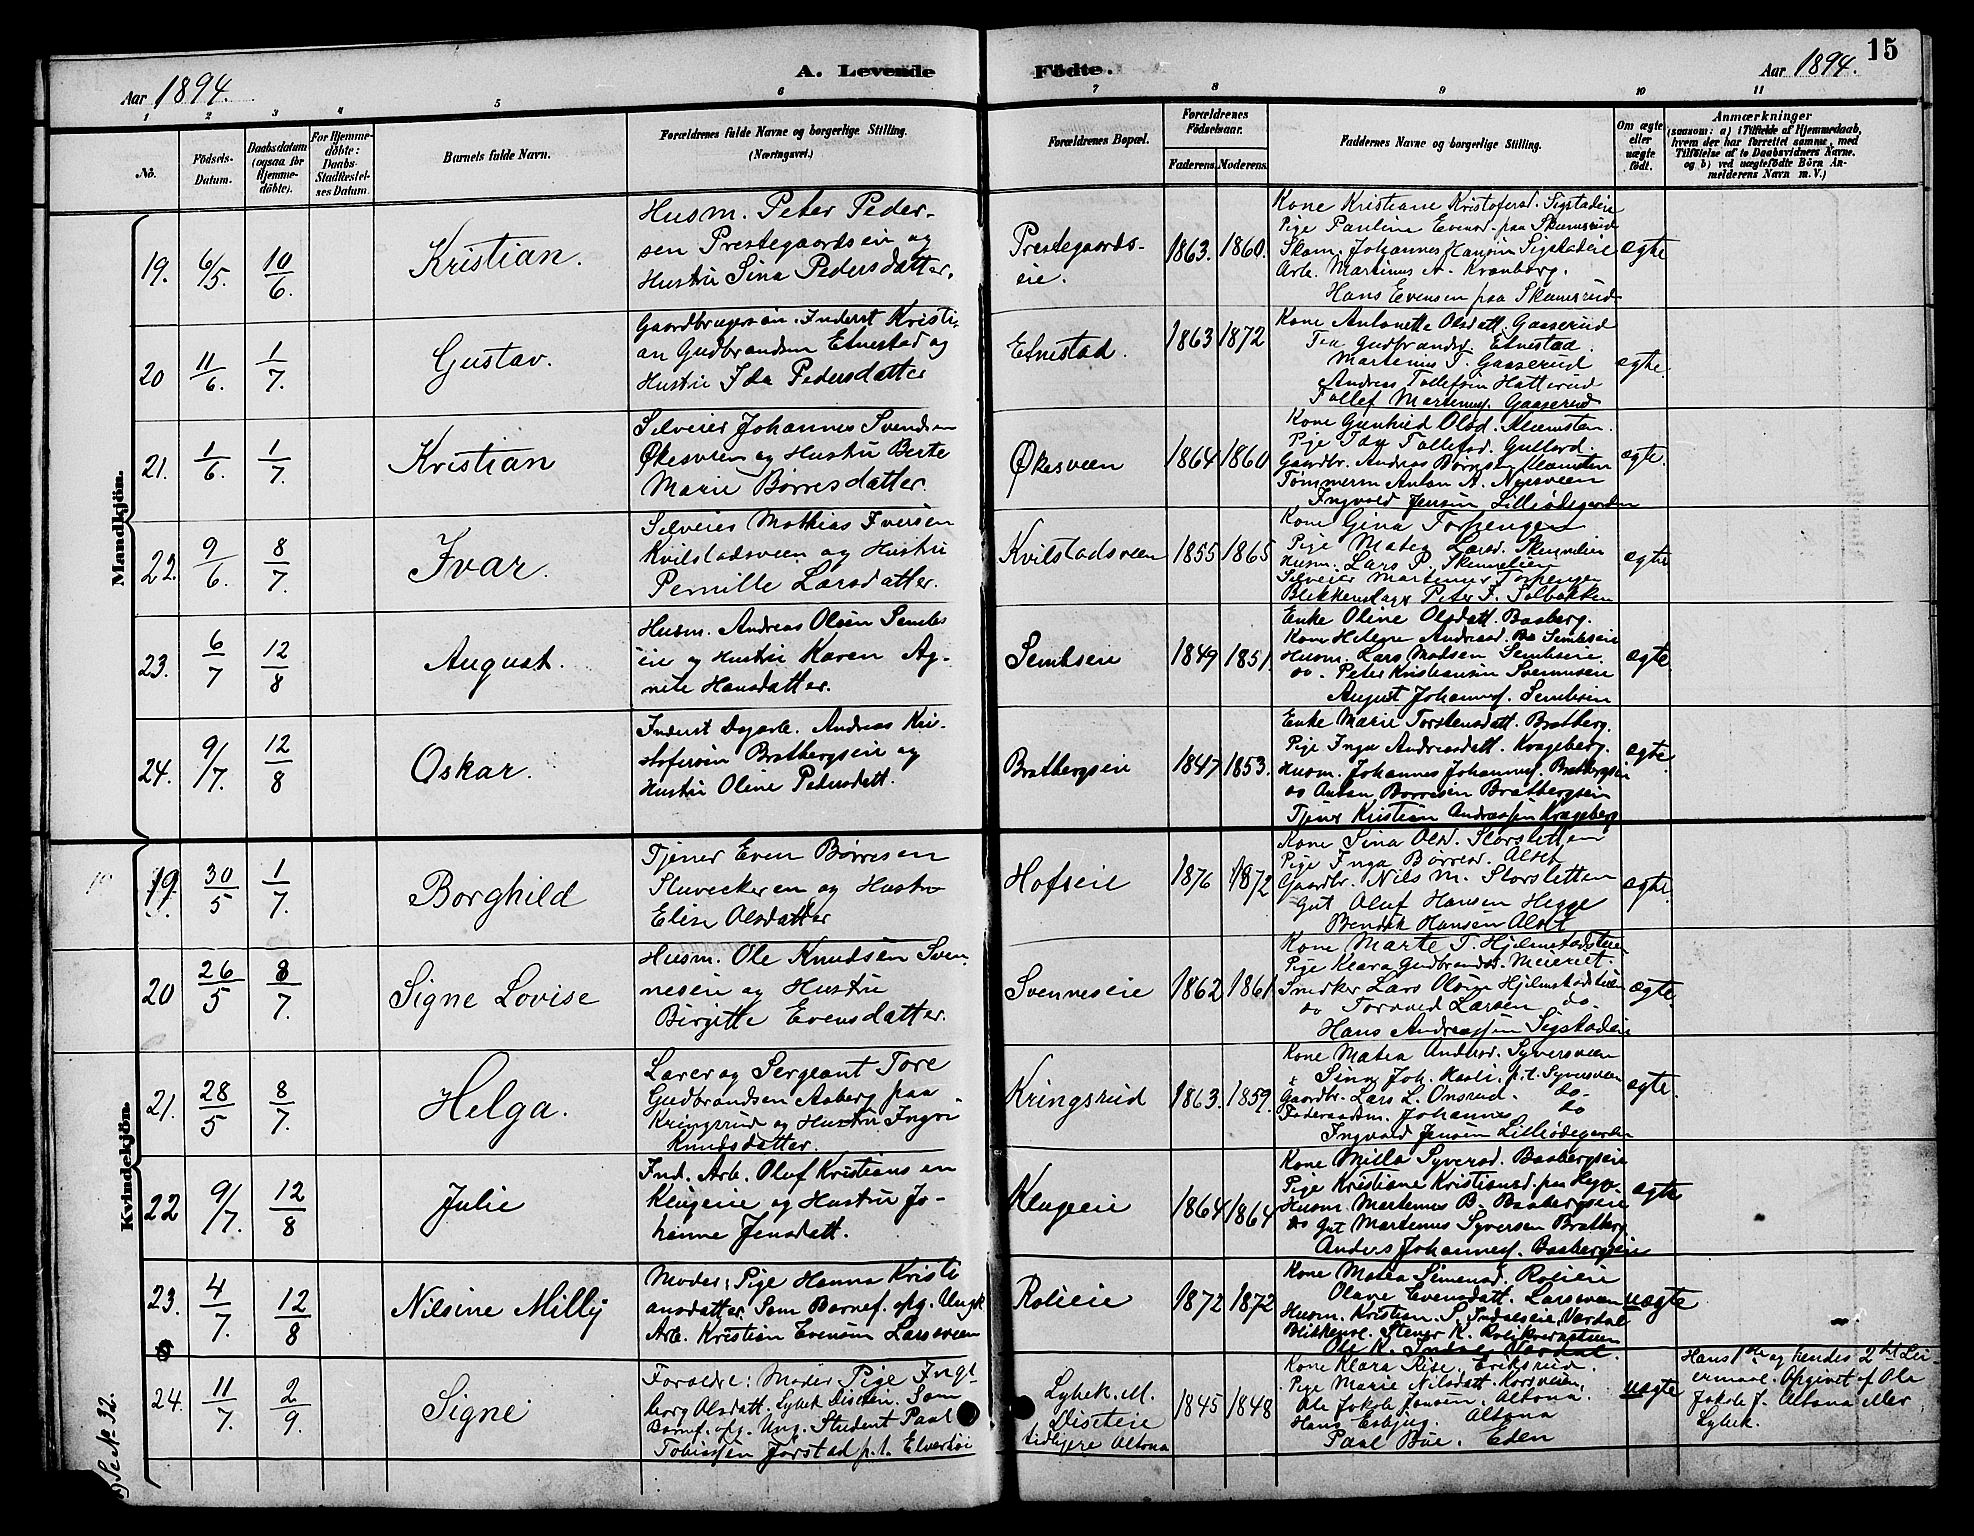 15
Aar 1894.
A. Levende Födte.
Aar 1894.
1 2 3 4 5 6 7 8 9 10 11
No.
Födsels-Datum.
Daabsdatum (ogsaa for Hjemmedöbte).
For Hjemmedöbte: Daabs-Stadfæstelses Datum.
Barnets fulde Navn.
Forældrenes fulde Navne og borgerlige Stilling.
(Næringsvei.)
Forældrenes Bopæl.
Forældrenes Födselsaar.
Faderens. Moderens.
Faddernes Navne og borgerlige Stilling.
Om ægte eller uægte födt.
Anmærkninger
(saasom: a) i Tilfælde af Hjemmedaab,
hvem der har forrettet samme, med
Tilföielse af to Daabsvidners Navne,
og b) ved uægtefödte Börn An-
melderens Navn m. V.)
Mandkjön.
19. 6/5. 10/6. Kristian.
Husm. Peter Peder-
sen Prestegaardseie og
Hustru Sina Pedersdatter.
Prestegaards-
eie.
1863. 1860.
Kone Kristiane Kristofersd. Sigstadeie
Pige Pauline Evensd. paa Skumsrud
Skom. Johannes Hansen Sigstadeie
Arb. Martinus A. Kranborg.
Hans Evensen paa Skumsrud
ægte
20 11/6. 1/7. Gustav.
Gaardbrugersøn. Inderst Kristi-
an Gudbrandsen Etnestad og
Hustru Ida Pedersdatter
Etnestad.
1863 1872
Kone Antonette Olsdatt. Gaaserud
Tea Gudbrandsd. Etnestad.
Martenius T. Gaaserud
Andreas Tollefsen Hatterud
Tollef Martenius. Gaaserud
ægte.
21. 1/6. 1/7. Kristian
Selveier Johannes Svendsen
Økesveen og Hustru Berte
Marie Børresdatter.
Økesveen
1864 1860
Kone Gunhild Olsd. Klemsten
Pige Ida Tollefsd. Gullord.
Gaardbr. Andreas Børresen Klemsten
Tømmerm Anton A. Nysveen
Ingvald Jensen Lilleødegaarden
ægte.
22. 9/6. 8/7. Ivar.
Selveier Mathias Iversen
Kvilstadsveen og Hustru
Pernille Larsdatter.
Kvilstadsveen
1855 1865
Kone Gina Torpengen
Pige Matea Larsd. Skumelien
Husm. Lars P. Skumelien
Selveier Martenius Torpengen
Blikkenslager Peter F. Solbakken
ægte
23. 6/7 12/8 August.
Husm. Andreas Olsen Sembs
eie og Hustru Karen Ag-
nete Hansdatter.
Sembseie
1849 1851.
Enke Oline Olsdatt. Baaberg.
Kone Helene Andreasd. Sembseie
Husm. Lars Madsen Sembseie.
do. Peter Kristiansen Svennesein
August Johannes. Sembsein
ægte.
24. 9/7. 12/8 Oskar.
Inderst Dagarb. Andreas Kri-
stofersen Bratbergseie og
Hustru Oline Pedersdatt.
Bratbergseie
1847 1853.
Enke Marie Torstensdatt. Bratberg.
Pige Inga Andreasdatt. Krageberg.
Husm. Johannes Johannes. Bratbergseie
do Anton Børresen Bratbergsein
Tjener Kristian Andreassen Krageberg
ægte.
Kvindekjön.
19 30/5 1/7. Borghild
Tjener Even Børresen
Sluveckeren og Hustru
Elise Olsdatter
Hofseie
1876 1872
Kone Sina Olsd. Storsletten
Pige Inga Børresd. Alset
Gaardbr. Nils M. Storsletten
Gut Oluf Hansen Hegge
Bendik Hansen Alset
ægte.
20 26/5 8/7. Signe Lovise
Husm. Ole Knudsen Sven-
neseie og Hustru
Birgitte Evensdatter.
Svenneseie
1862 1861
Kone Marte T. Hjelmstadstuen
Pige Klara Gudbrandsd. Meieriet.
Snedker Lars Olsen Hjelmstadstuen
do Torvald Larsen do.
Hans Andreassen Sigstadeie
ægte.
21. 28/5 8/7. Helga.
Lærer og Sergeant Tore
Gudbrandsen Aaberg paa
Kringsrud og Hustru Ingri
Knudsdatter.
Kringsrud
1863. 1859.
Kone Matea Andersd. Syversveen
Sina Joh. Haoli p.t. Syversveen
Gaardbr. Lars L. Onsrud. do.
Føderaadsm. Johannes do
Ingvald Jensen Lilleødegarden
ægte.
22 9/7. 12/8 Julie
Ind. Arb. Oluf Kristiansen
Klugeie og Hustru Jo-
hanne Jensdatt.
Klugeeie
1864 1864
Kone Milla Syversd. Baabergseie
Pige Kristiane Kristiansd. paa
Husm. Martenius B. Baabergseie
do Gut Martenius Syversen Bratberg
Anders Johannes. Baabergseie
ægte
23. 4/7. 12/8 Nilsine Milly
Moder: Pige Hanna Kristi
ansdatter Som Barnef. opg. Ungk
Arb. Kristian Evensen Larsveen
Rolieie
1872 1872
Kone Matea Simensd. Rolieie
Olave Evensdatt. Larsveen
Husm. Kristian S. Indalseie, Værdal
Blikkensl. Stener K. Rolikvernstuen
Ole K. Indal Værdal.
uægte
24. 11/7. 2/9. Signe
Foreldre: Moder Pige Inge-
borg Olsdatt. Lybek Disetein. Som
Barnef. opg. Ung. Student Paal
Tobiassen Jørstad p.t. Elverhøi
Lybek. M.
Diseteie
tidligere Altona
1845 1848
Kone Klara Rise. Eriksrud.
Pige Marie Nilsdatt. Korsveien.
Ole Jakob Jensen. Altona
Hans Esbjug. Altona
Paal Bøe. Eden
uægte
Hans 1ste og hendes 2det Lei-
ermaal. Opgivet af Ole
Jakob J. Altona eller
Lybek.
Se № 32.